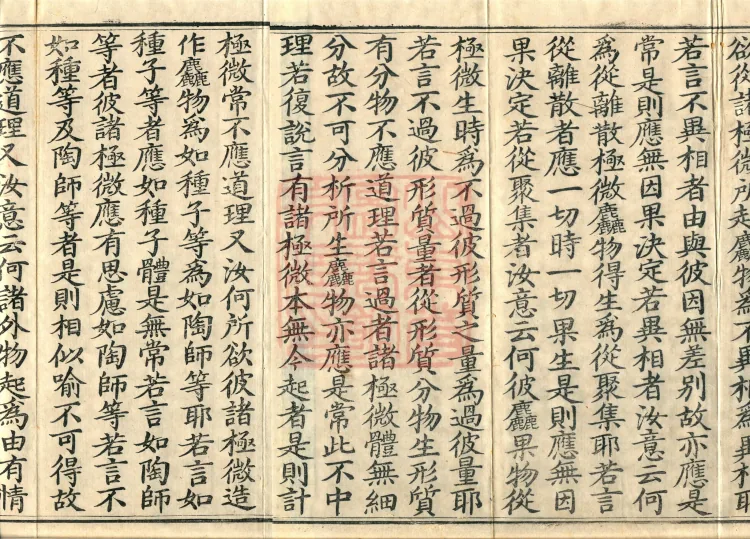 欲從諸極微所起麤物為不異相為異相耶
若言不異相者由與彼因無差別故亦應是
常是則應無因果決定若異相者汝意云何
為從離散極微麤物得生為從聚集耶若言
從離散者應一切時一切果生是則應無因
果決定若從聚集者汝意云何彼麤果物從
極微生時為不過彼形質之量為過彼量耶
若言不過彼形質量者從形質分物生形質
有分物不應道理若言過者諸極微體無細
分故不可分析所生麤物亦應是常此不中
理若復說言有諸極微本無今起者是則計
極微常不應道理又汝何所欲彼諸極微造
作麤物為如種子等為如陶師等耶若言如
種子等者應如種子體是無常若言如陶師
等者彼諸極微應有思慮如陶師等若言不
如種等及陶師等者是則相似喻不可得故
不應道理又汝意云何諸外物起為由有情